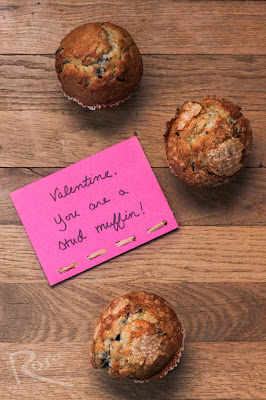 Valentine,
You are a
stud muffin!